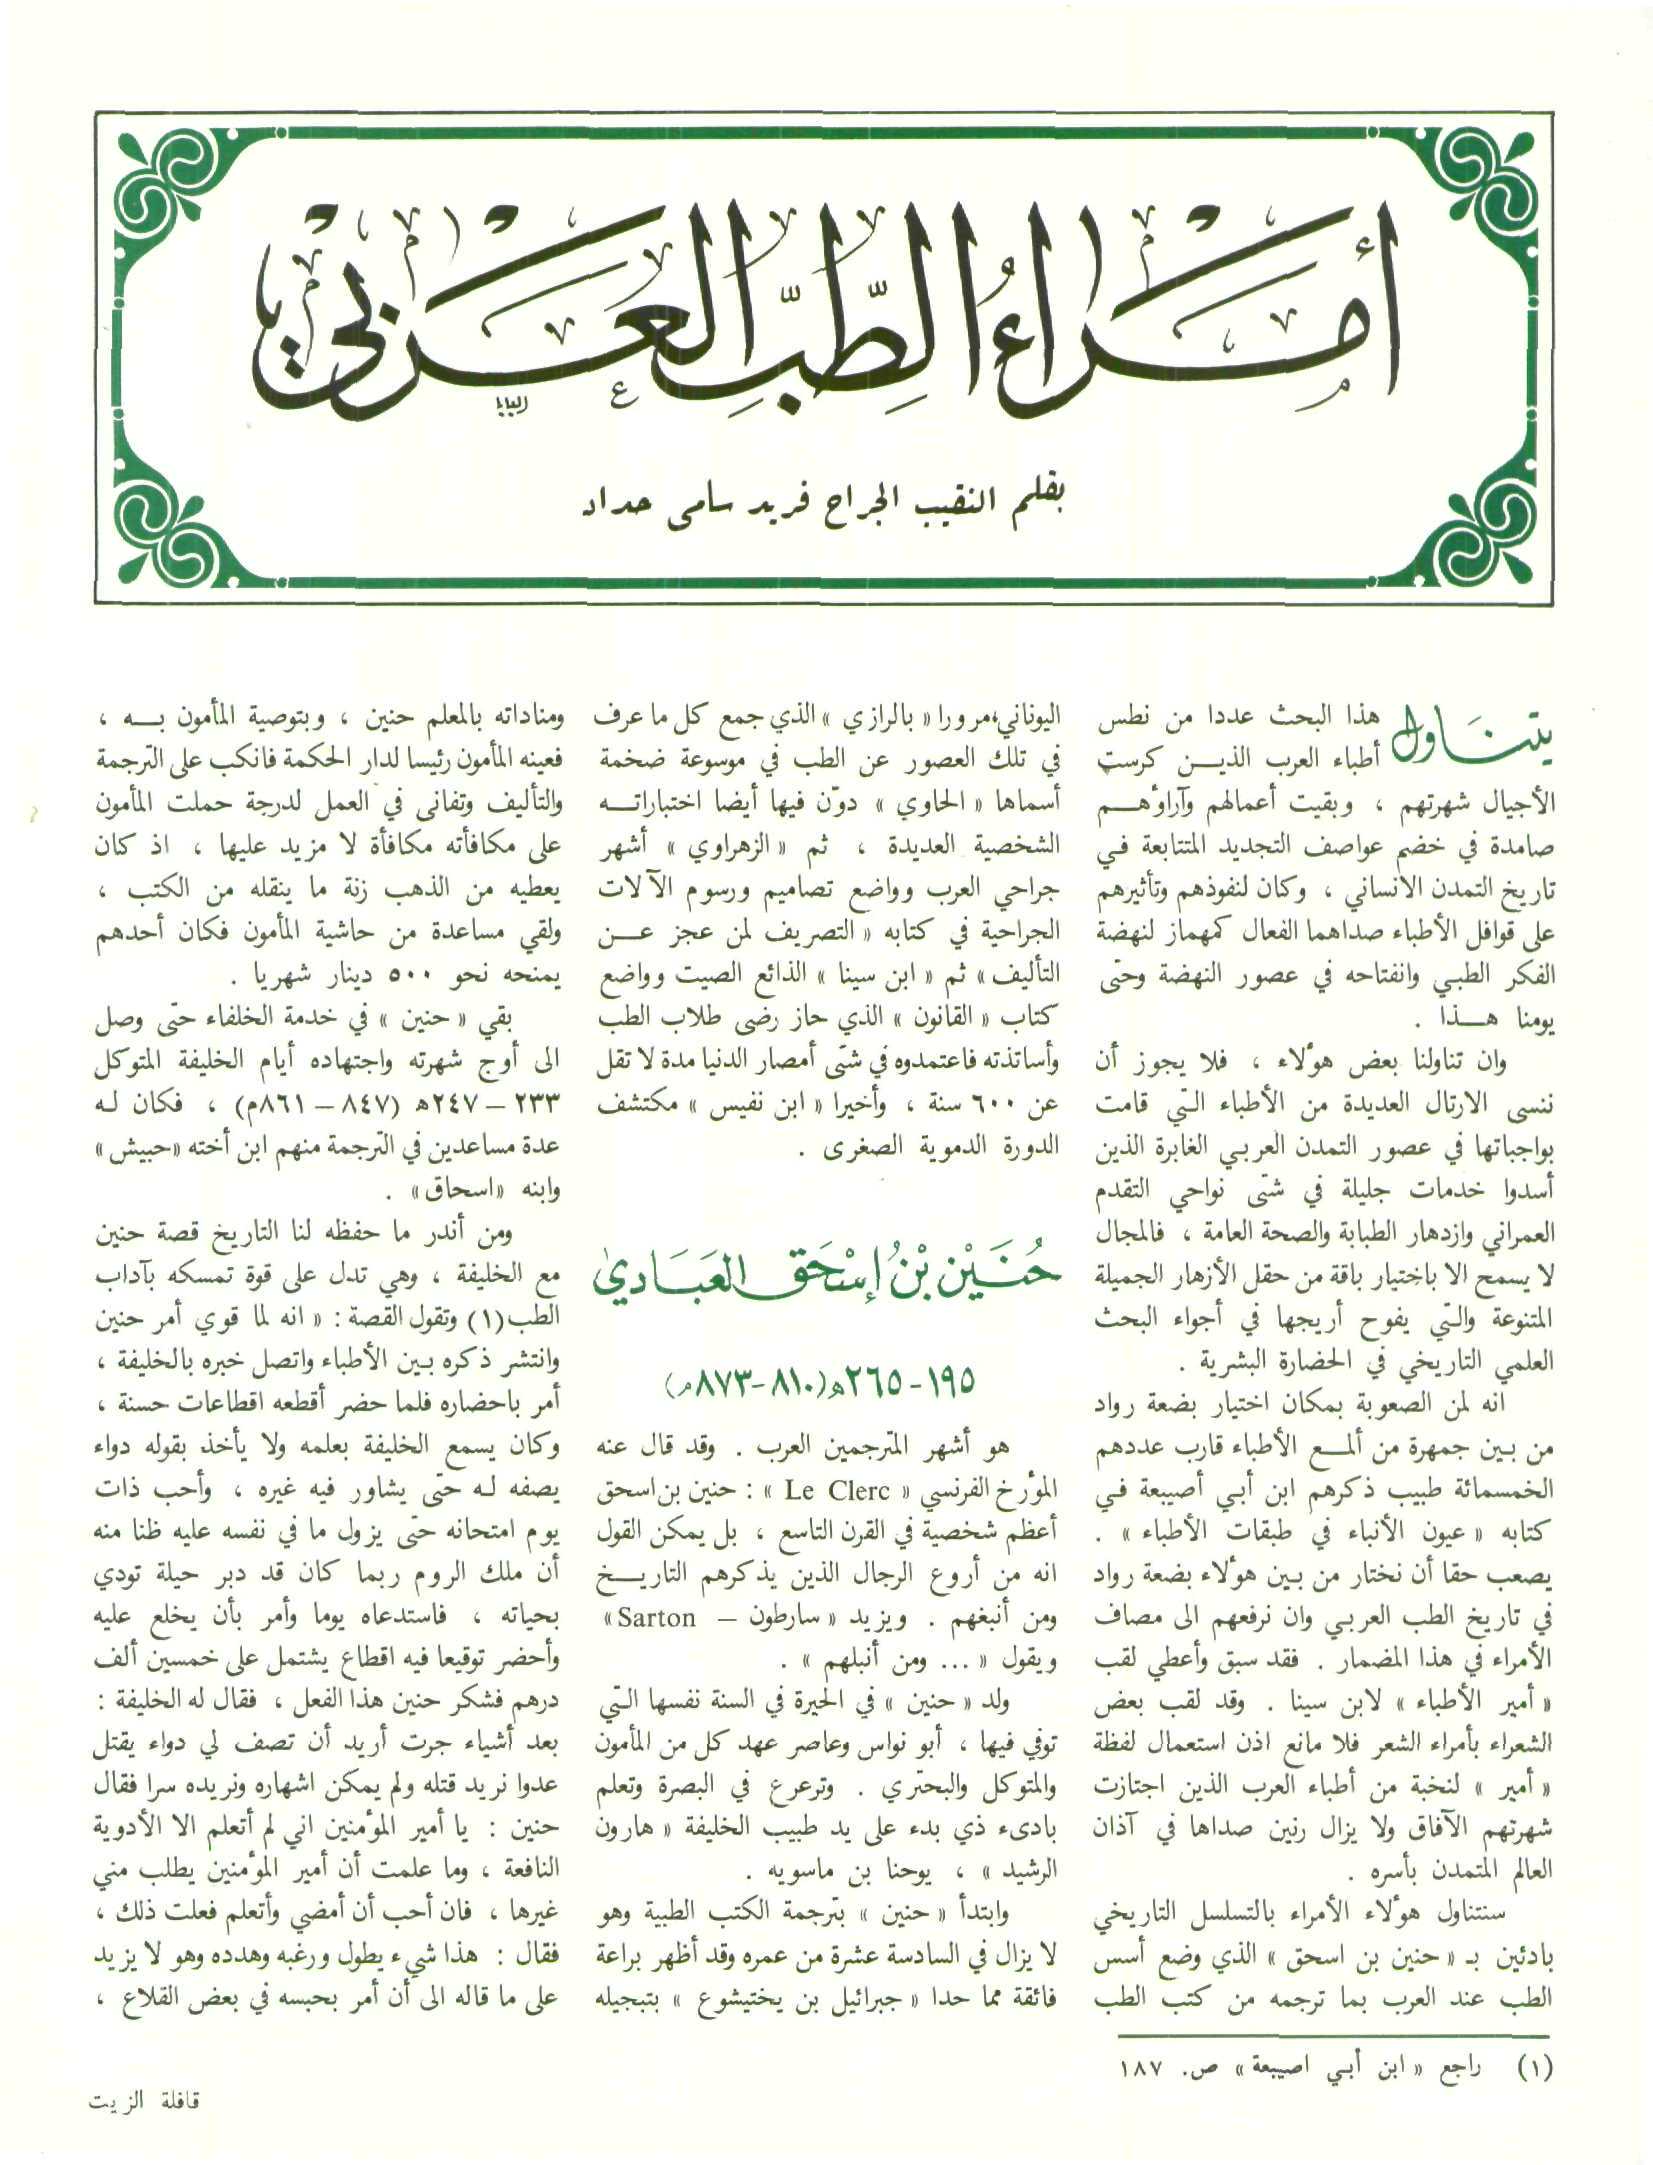 أمراء الطب العربي
بقلم النقيب الجراح فريد سامي حداد
يتناول هذا البحث عددا من نطس
أطباء العرب الذيــن كرست
الأجيال شهرتهم ، وبقيت أعمالهم وآراؤهــم
صامدة في خضم عواصف التجديد المتتابعة فـي
تاريخ التمدن الانساني ، وكان لنفوذهم وتأثيرهم
على قوافل الأطباء صداهما الفعال كمهماز لنهضة
الفكر الطبـي وانفتاحه في عصور النهضة وحتى
يومنا هــذا .
وان تناولنا بعض هؤلاء ، فلا يجوز أن
ننسى الارتال العديدة من الأطباء التي قامت
بواجباتها في عصور التمدن العربـي الغابرة الذين
أسدوا خدمات جليلة في شتى نواحي التقدم
العمراني وازدهار الطبابة والصحة العامة ، فالمجال
لا يسمح الا باختيار باقة من حقل الأزهار الجميلة
المتنوعة والتي يفوح أريجها في أجواء البحث
العلمي التاريخي في الحضارة البشرية .
انه لمن الصعوبة بمكان اختيار بضعة رواد
من بـين جمهرة من ألمـع الأطباء قارب عددهم
الخمسمائة طبيب ذكرهم ابن أبـي أصيبعة فـي
كتابه « عيون الأنباء في طبقات الأطباء » .
يصعب حقا أن نختار من بـين هؤلاء بضعة رواد
في تاريخ الطب العربـي وان نرفعهم الى مصاف
الأمراء في هذا المضمار . فقد سبق وأعطي لقب
« أمير الأطباء » لابن سينا . وقد لقب بعض
الشعراء بأمراء الشعر فلا مانع اذن استعمال لفظة
« أمير » لنخبة من أطباء العرب الذين اجتازت
شهرتهم الآفاق ولا يزال رنين صداها في آذان
العالم المتمدن بأسره .
سنتناول هؤلاء الأمراء بالتسلسل التاريخي
بادئين بـ « حنين بن اسحق » الذي وضع أسس
الطب عند العرب بما ترجمه من كتب الطب
اليوناني،مرورا « بالرازي » الذي جمع كل ما عرف
في تلك العصور عن الطب في موسوعة ضخمة
أسماها « الحاوي » دوّن فيها أيضا اختباراتــه
الشخصية العديدة ، ثم « الزهراوي » أشهر
جراحي العرب وواضع تصاميم ورسوم الآلات
الجراحية في كتابه « التصريف لمن عجز عــن
التأليف » ثم « ابن سينا » الذائع الصيت وواضع
كتاب « القانون » الذي حاز رضى طلاب الطب
وأساتذته فاعتمدوه في شتى أمصار الدنيا مدة لا تقل
عن ٦٠٠ سنة ، وأخيرا « ابن نفيس » مكتشف
الدورة الدموية الصغرى .
حُنَيْن بْنُ إسْحَق العَبَادي
١٩٥-٢٦٥هـ(٨١٠-٨٧٣م)
هو أشهر المترجمين العرب . وقد قال عنه
المؤرخ الفرنسي « Le Clerc » : حنين بن اسحق
أعظم شخصية في القرن التاسع ، بل يمكن القول
انه من أروع الرجال الذين يذكرهم التاريــخ
ومن أنبغهم . ويزيد « سارطون – Sarton»
ويقول « ... ومن أنبلهم » .
ولد « حنين » في الحيرة في السنة نفسها التي
توفي فيها ، أبو نواس وعاصر عهد كل من المأمون
والمتوكل والبحتري . وترعرع في البصرة وتعلم
بادىء ذي بدء على يد طبيب الخليفة « هارون
الرشيد » ، يوحنا بن ماسويه .
وابتدأ « حنين » بترجمة الكتب الطبية وهو
لا يزال في السادسة عشرة من عمره وقد أظهر براعة
فائقة مما حدا « جبرائيل بن يختيشوع » بتبجيله
ومناداته بالمعلم حنين ، وبتوصية المأمون بــه ،
فعينه المأمون رئيسا لدار الحكمة فانكب على الترجمة
والتأليف وتفانى في العمل لدرجة حملت المأمون
على مكافأته مكافأة لا مزيد عليها ، اذ كان
يعطيه من الذهب زنة ما ينقله من الكتب ،
ولقي مساعدة من حاشية المأمون فكان أحدهم
يمنحه نحو ٥٠٠ دينار شهريا .
بقي « حنين » في خدمة الخلفاء حتى وصل
الى أوج شهرته واجتهاده أيام الخليفة المتوكل
٢٣٣ – ٢٤٧هـ (٨٤٧ – ٨٦١م) ، فكان لـه
عدة مساعدين في الترجمة منهم ابن أخته «حبيش»
وابنه «اسحاق» .
ومن أندر ما حفظه لنا التاريخ قصة حنين
مع الخليفة ، وهي تدل على قوة تمسكه بآداب
الطب(١) وتقول القصة : « انه لما قوي أمر حنين
وانتشر ذكره بـين الأطباء واتصل خبره بالخليفة ،
أمر باحضاره فلما حضر أقطعه اقطاعات حسنة ،
وكان يسمع الخليفة بعلمه ولا يأخذ بقوله دواء
يصفه لـه حتى يشاور فيه غيره ، وأحب ذات
يوم امتحانه حتى يزول ما في نفسه عليه ظنا منه
أن ملك الروم ربما كان قد دبر حيلة تودي
بحياته ، فاستدعاه يوما وأمر بأن يخلع عليه
وأحضر توقيعا فيه اقطاع يشتمل على خمسين ألف
درهم فشكر حنين هذا الفعل ، فقال له الخليفة :
بعد أشياء جرت أريد أن تصف لي دواء يقتل
عدوا نريد قتله ولم يمكن اشهاره ونريده سرا فقال
حنين : يا أمير المؤمنين اني لم أتعلم الا الأدوية
النافعة ، وما علمت أن أمير المؤمنين يطلب مني
غيرها ، فان أحب أن أمضي وأتعلم فعلت ذلك ،
فقال : هذا شيء يطول ورغبه وهدده وهو لا يزيد
على ما قاله الى أن أمر بحبسه في بعض القلاع ،
(١) راجع « ابن أبـي اصيبعة » ص. ١٨٧
قافلة الزيت